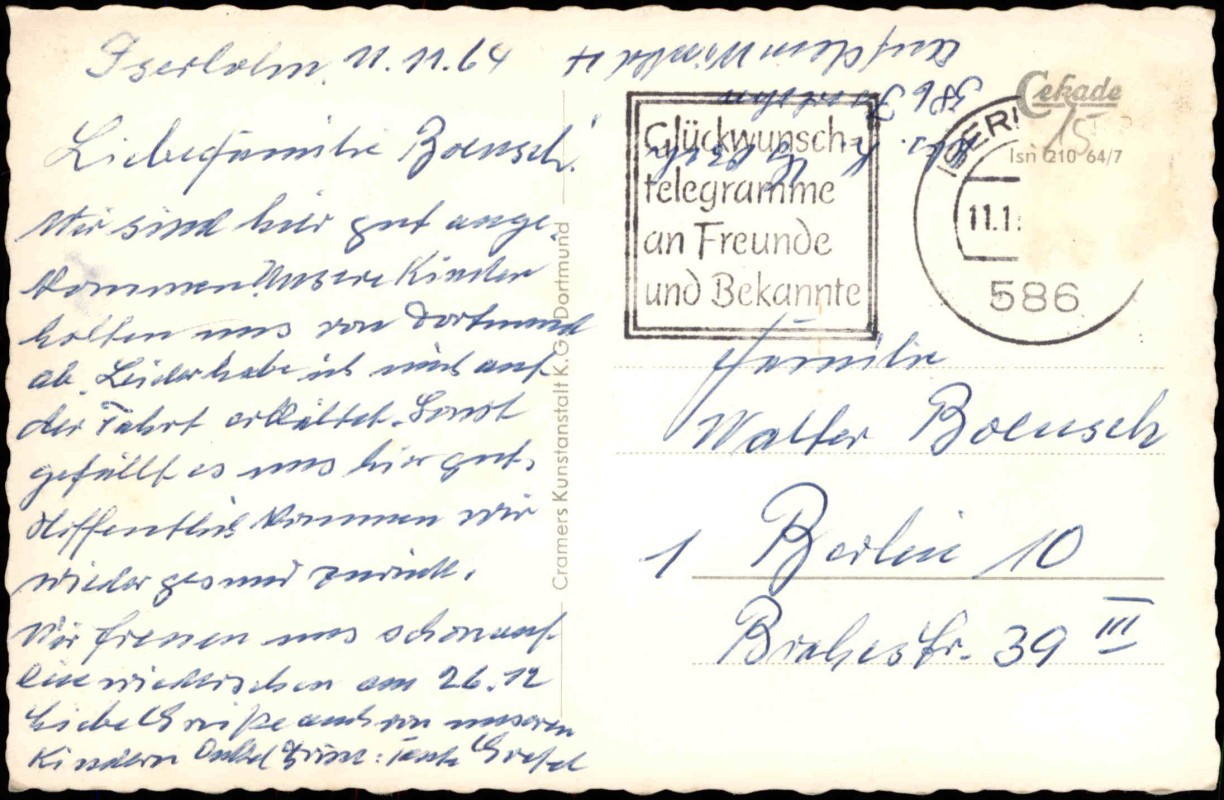 Iserlohn, 11.11.64
Liebe Familie Boensch!
Wir sind hier gut ange-
kommen Unsere Kinder
holten uns von Dortmund
ab. Leider habe ich mich auf
der Fahrt erkältet. Sonst
gefällt es uns hier gut.
Hoffentlich kommen wir
wieder gesund zurück.
Wir freuen uns schon auf
ein wiedersehen am 26.12
Liebe Grüße auch von unseren
Kindern Onkel Tante Gretel
586 Iserlohn
Cekade
15
Isn 210 64/7
Glückwunsch-
telegramme
an Freunde
und Bekannte
ISERL
11.1
586
Cramers Kunstanstalt K.G. Dortmund
Familie
Walter Boensch
1 Berlin 10
Brahestr. 39 III